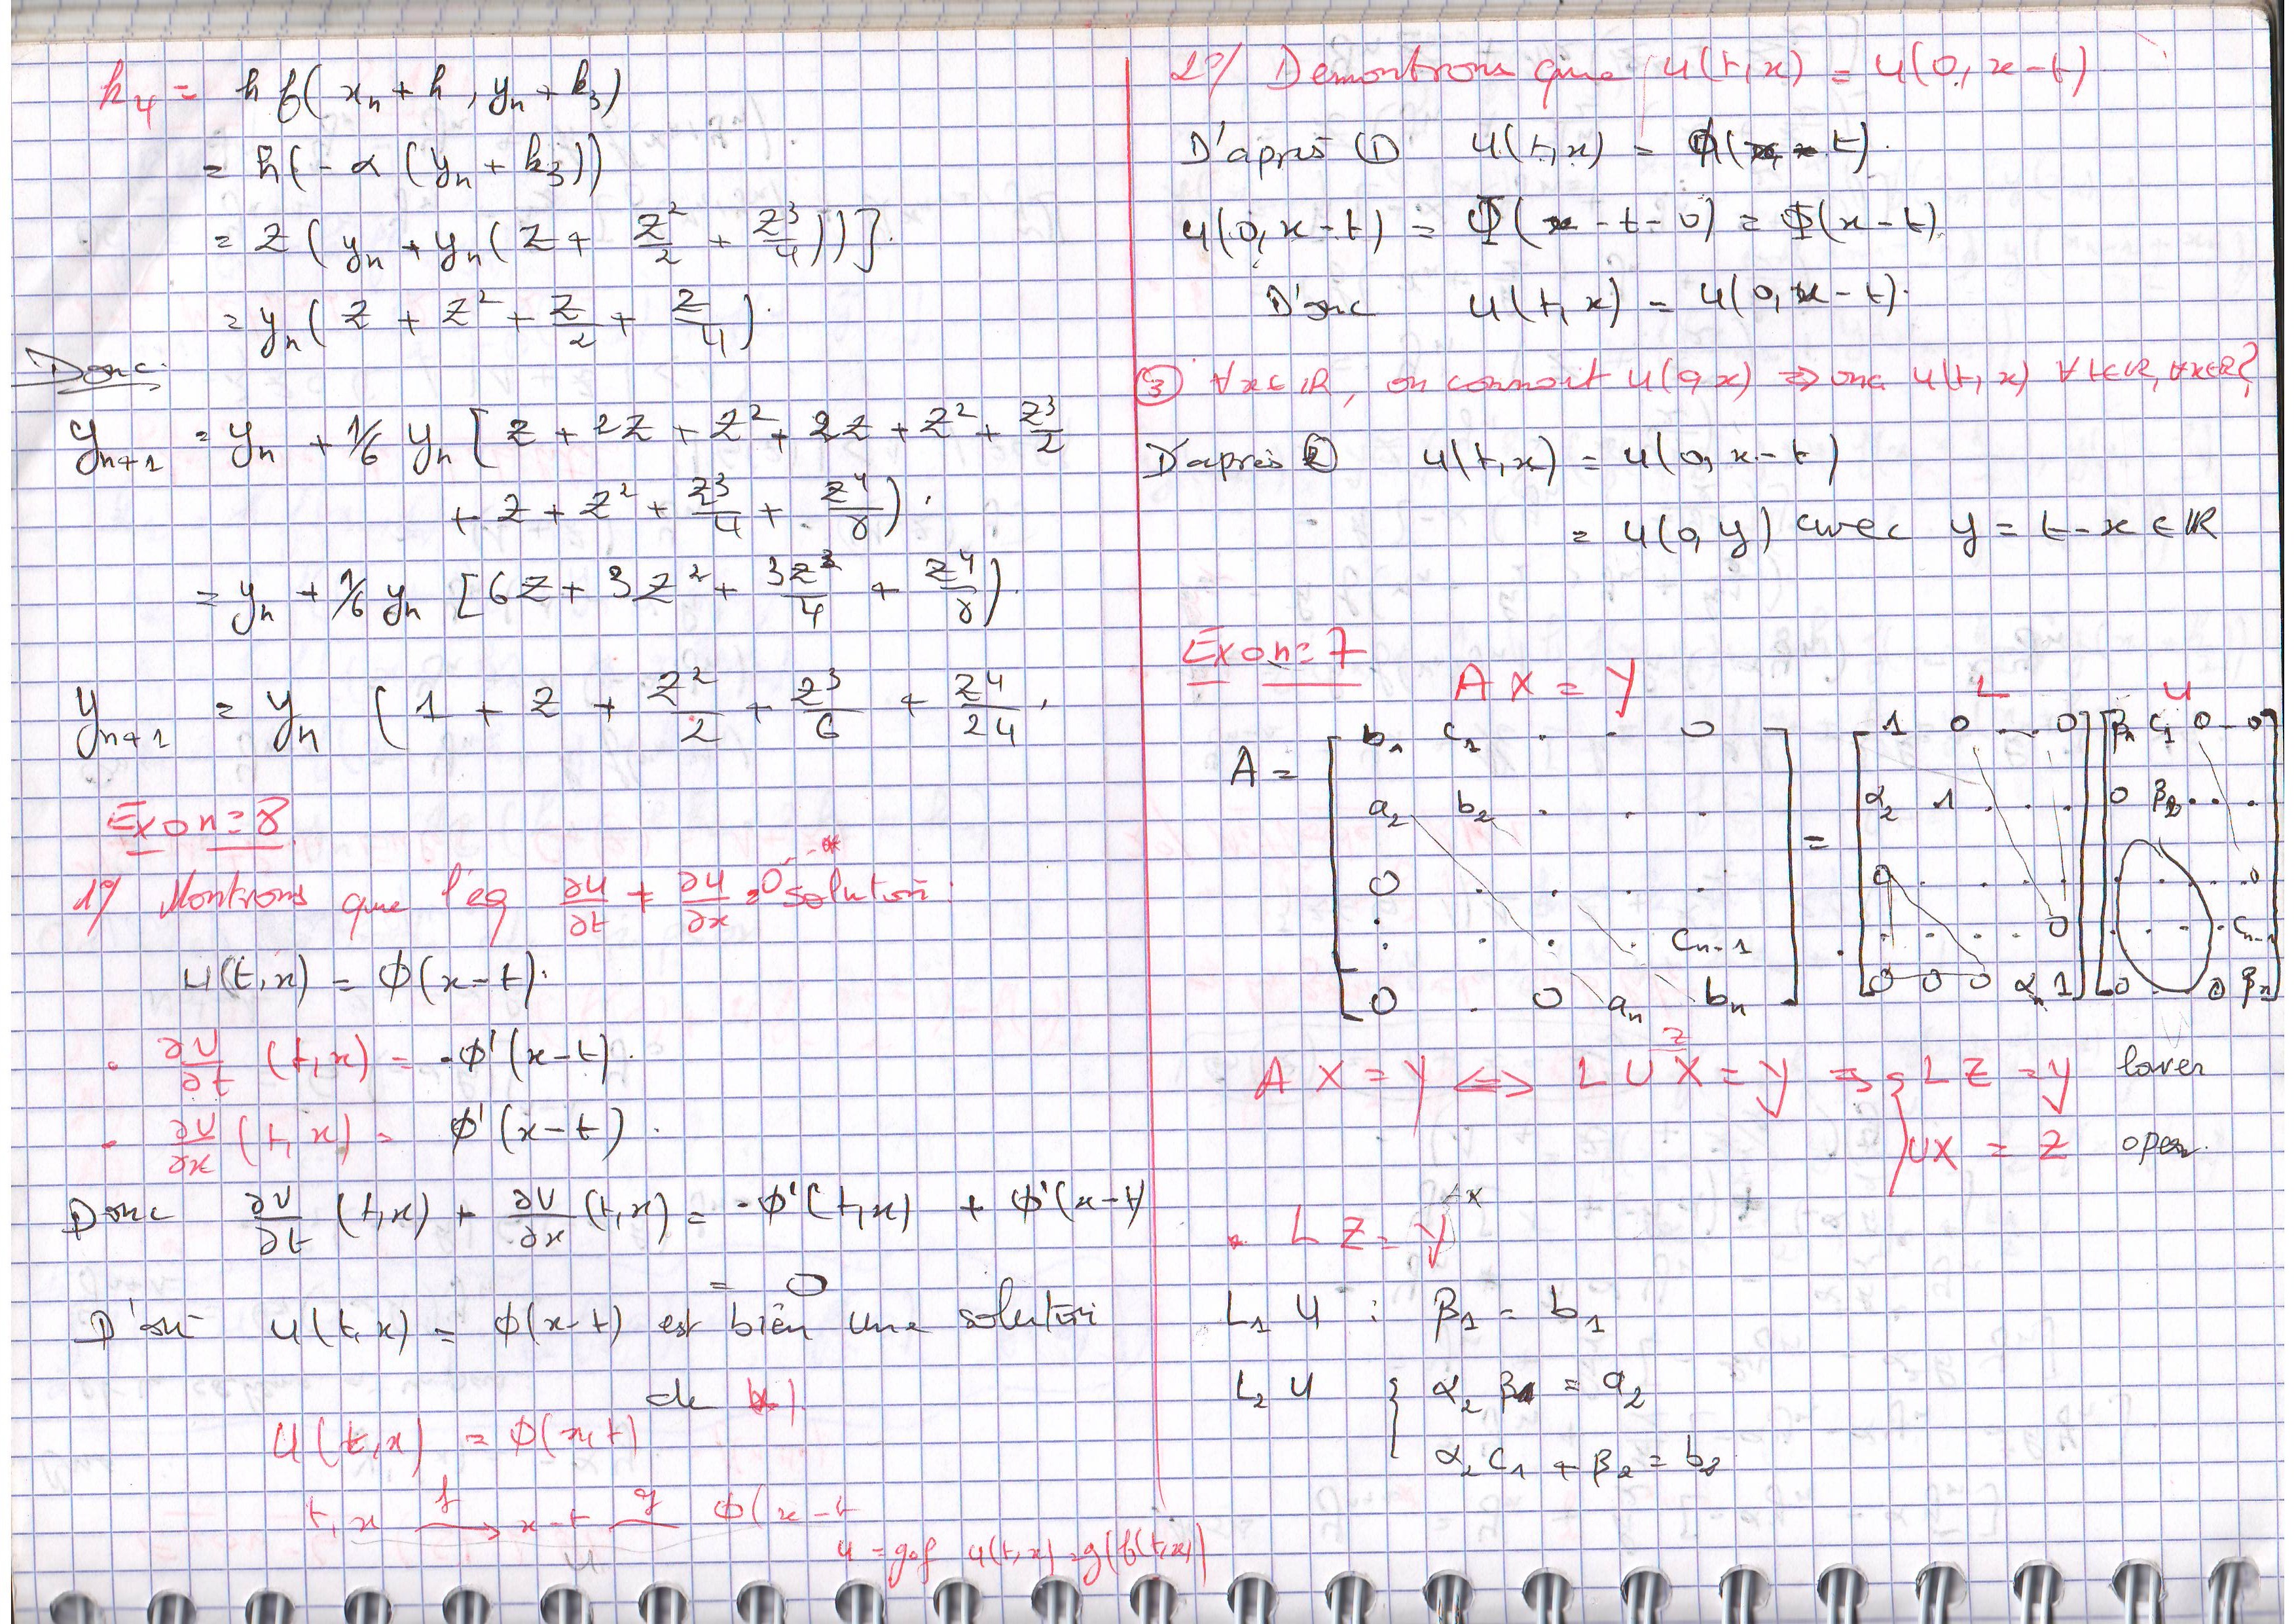 k₄ = h f(xₙ + h, yₙ + k₃)
= h(-α (yₙ + k₃))
= Z (yₙ + yₙ (Z + Z²/2 + Z³/4))].
= yₙ (Z + Z² + Z/2 + Z/4).
Donc:
yₙ₊₁ = yₙ + 1/6 yₙ [Z + 2Z + Z² + 2Z + Z² + Z³/2
+ Z + Z² + Z³/4 + Z⁴/8).
= yₙ + 1/6 yₙ [6Z + 3Z² + 3Z³/4 + Z⁴/8).
yₙ₊₁ = yₙ (1 + Z + Z²/2 + Z³/6 + Z⁴/24.
Exo n=8
1°/ Montrons que l'eq ∂u/∂t + ∂u/∂x = 0 * solution:
u(t,x) = ϕ(x-t).
• ∂U/∂t (t,x) = -ϕ'(x-t).
- ∂U/∂x (t,x) = ϕ'(x-t).
Donc ∂U/∂t (t,x) + ∂U/∂x (t,x) = -ϕ'(t,x) + ϕ'(x-t)
= 0
D'où u(t,x) = ϕ(x-t) est bien une solution
de
u(t,x) = ϕ(x,t)
t,x f→ x-t g→ ϕ(x-t
u
u = gof u(t,x) = g(f(t,x))
2°/ Demontrons que u(t,x) = u(0,x-t)
D'après ① u(t,x) = ϕ(x-t).
u(0,x-t) = Φ(x-t-0) = Φ(x-t).
D'onc u(t,x) = u(0,x-t).
③ ∀x∈ℝ, on connoit u(0,x) ⇒ onc u(t,x) ∀t∈ℝ, ∀x∈ℝ?
D'après ② u(t,x) = u(0,x-t)
= u(0,y) avec y = t-x ∈ ℝ
Exo n=7
AX = Y
L U
b₁ c₁ . . 0 1 0 . . 0 β₁ c₁ 0 . 0
A = a₂ b₂ . . . = α₂ 1 . . . 0 β₂ . . .
0 . . . . 0 . . . . . . . . 0
: . . . cₙ₋₁ . . . . . 0 . . . . cₙ₋₁
0 . 0 aₙ bₙ 0 0 0 αₙ 1 0 0 βₙ
Z
AX = Y ⇔ LUX = Y ⇒ { LZ = Y lower
UX = Z oper.
• LZ = Y
L₁ U : β₁ = b₁
L₂ U { α₂ β₁ = a₂
α₂ c₁ + β₂ = b₂